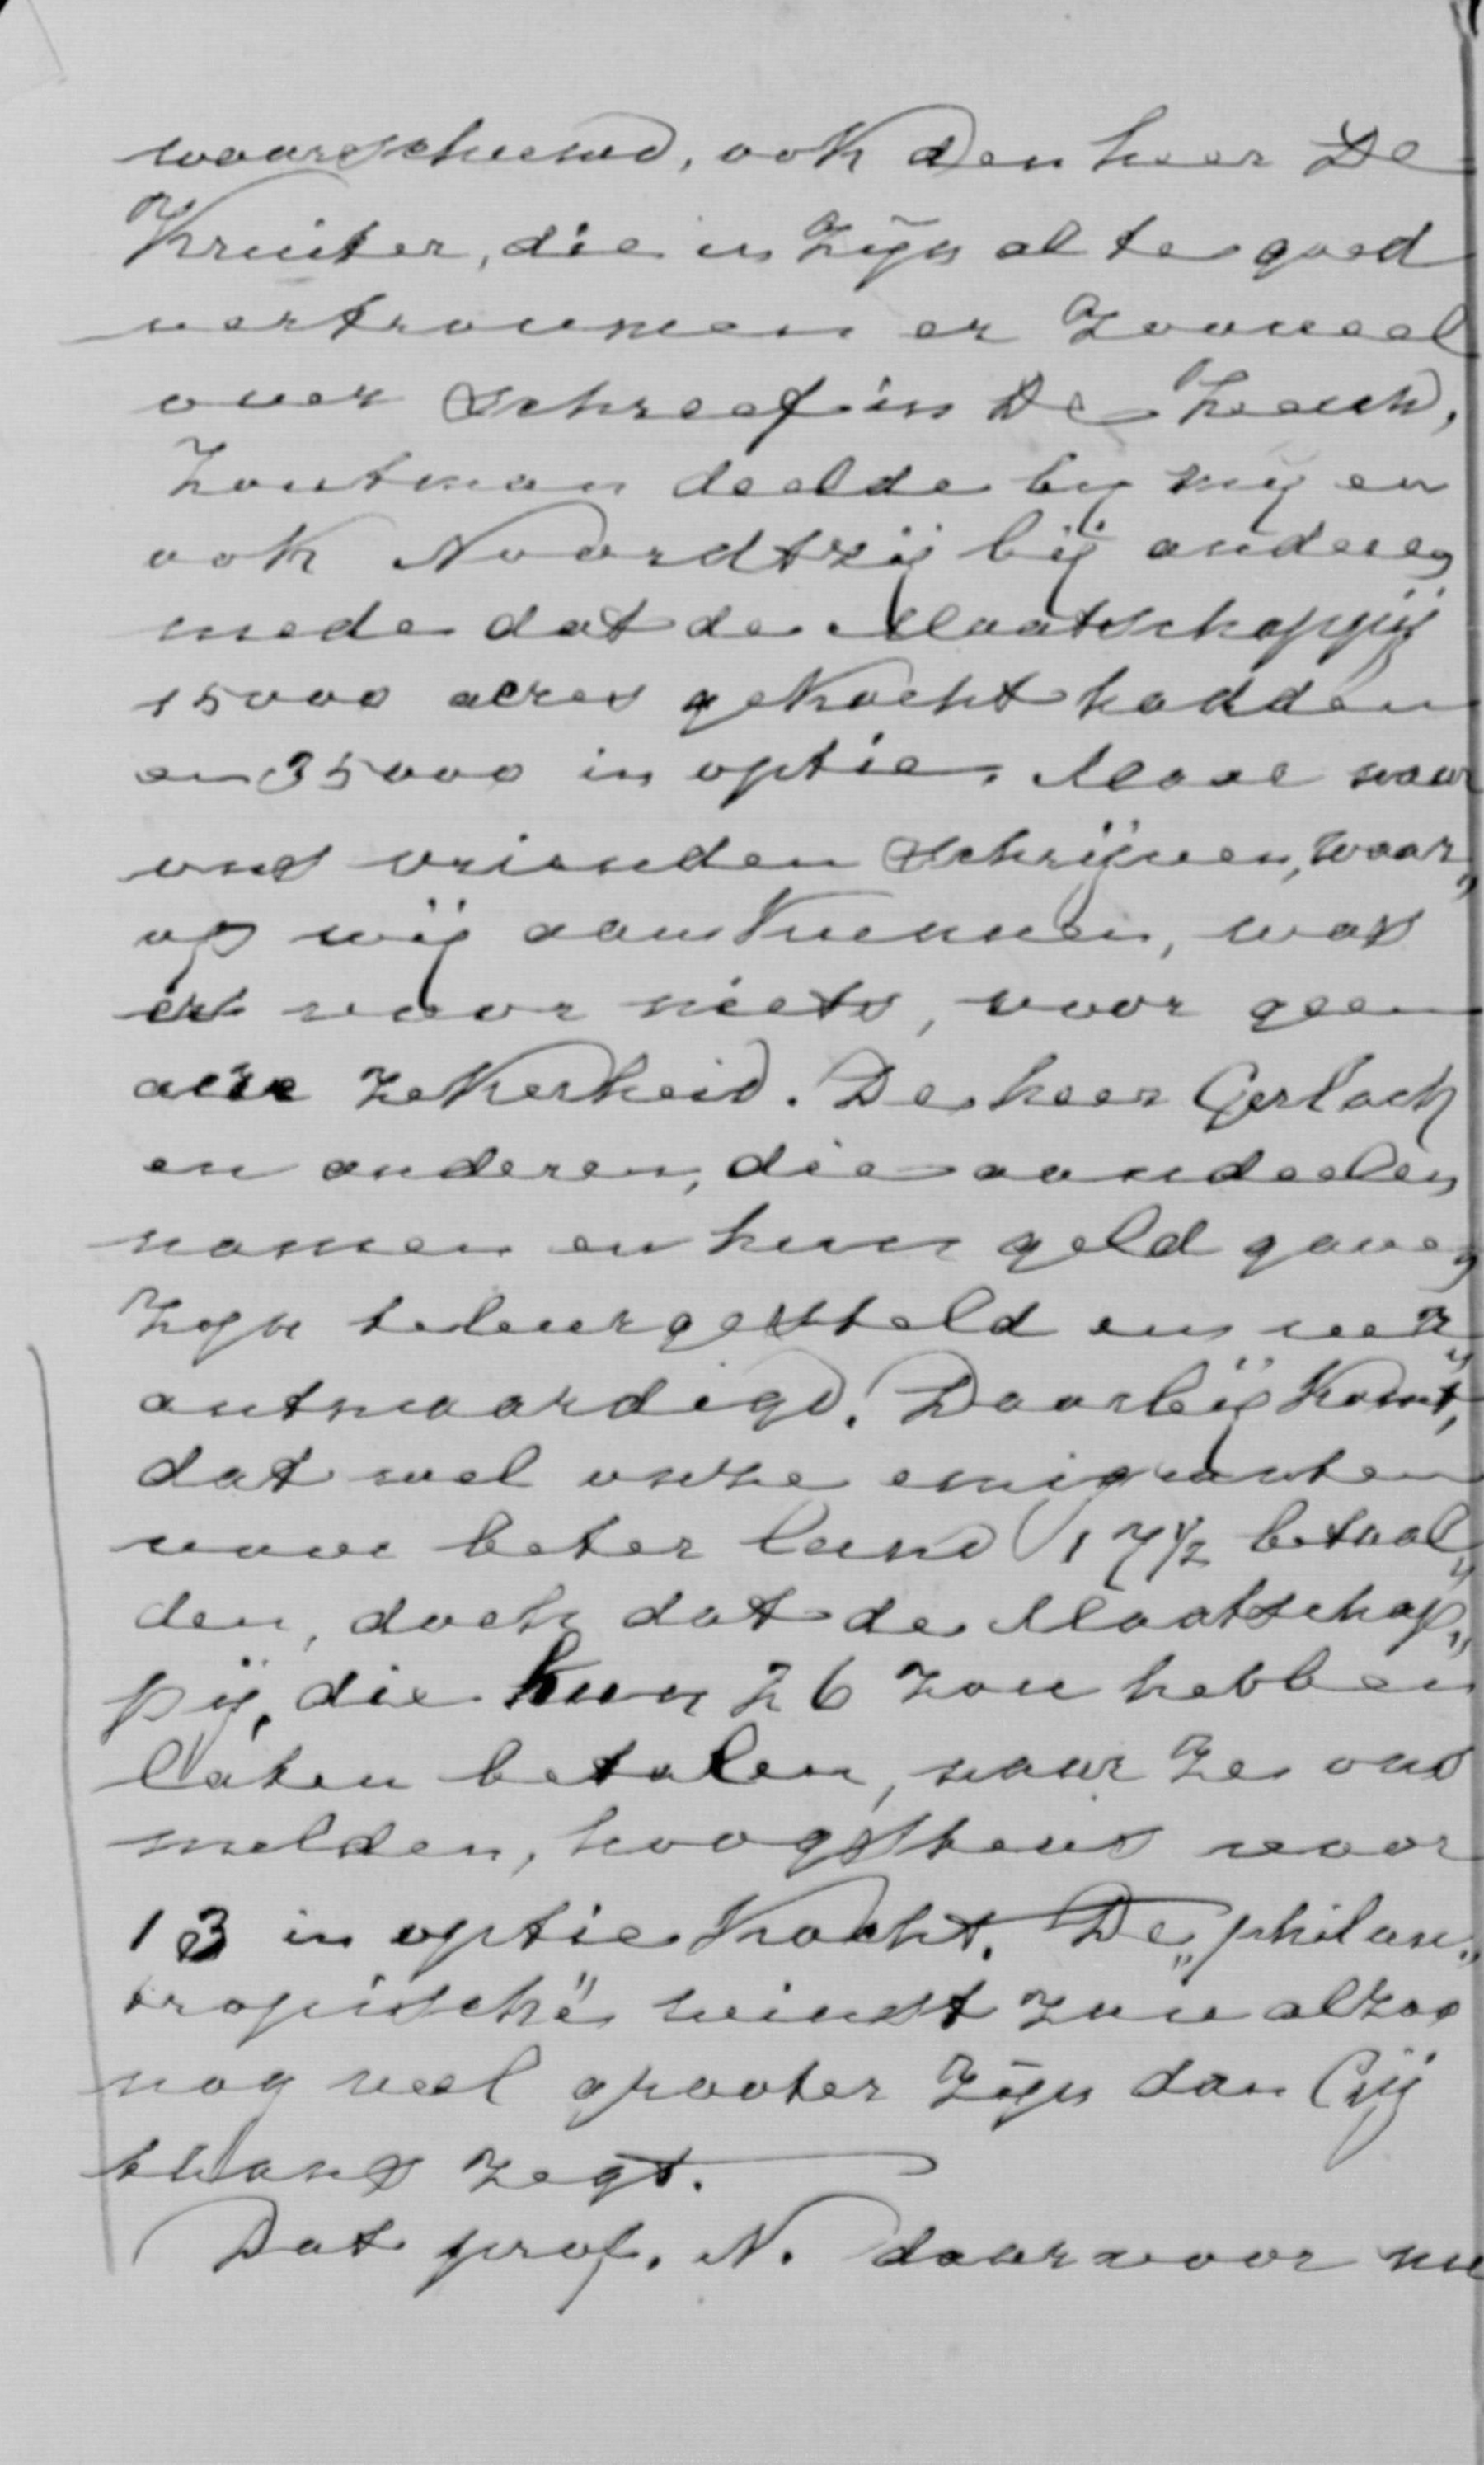 waarschuwd, ook den heer De
Kruiter, die in zijn al te goed
vertrouwen er zooveel
over schreef in De Zeeuw.
Zoutman deelde bij mij en
ook Noordtzij bij anderen
mede dat de Maatschappij
15000 acres gekocht hadden
en 35000 in optie. Maar naar
ons vrienden schrijven, waar„
op wij aan kunnen, was
er voor niets, voor geen
acre zekerheid. De heer Gerlach
en anderen, die aandeelen
namen en hun geld gaven
zijn teleurgesteld en ver„
ontwaardigd. Daarbij komt,
dat wel onze emigranten
voor beter land 17½ betaal„
den, doch dat de Maatschap„
pij, die hun 26 zou hebben
laten betalen, naar ze ons
melden, hoogstens voor
13 in optie kocht. De „philan„
tropische" winst zou alzoo
nog veel grooter zijn dan Gij
thans zegt.
Dat prof. N. daarvoor nu